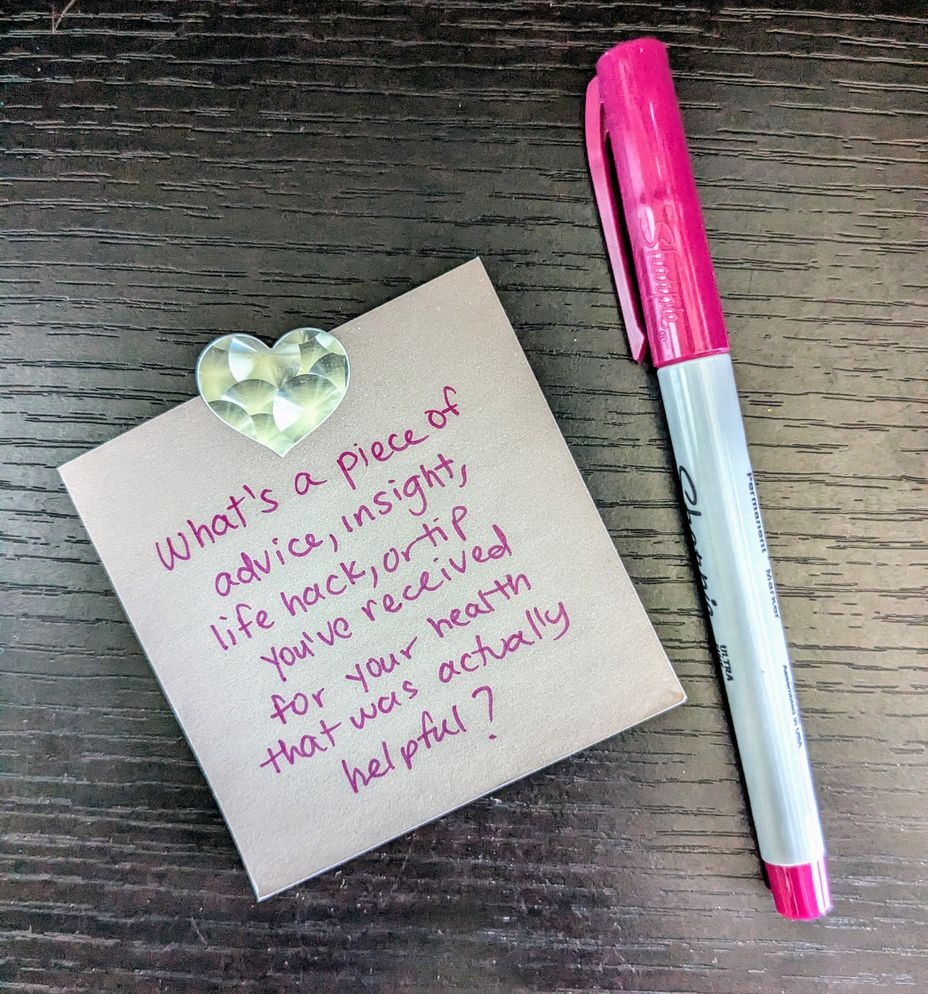 What's a piece of
advice, insight,
life hack, or tip
you've received
for your health
that was actually
helpful?
Sharpie®
Sharpie
ULTRA
Permanent Marker
Assembled in USA